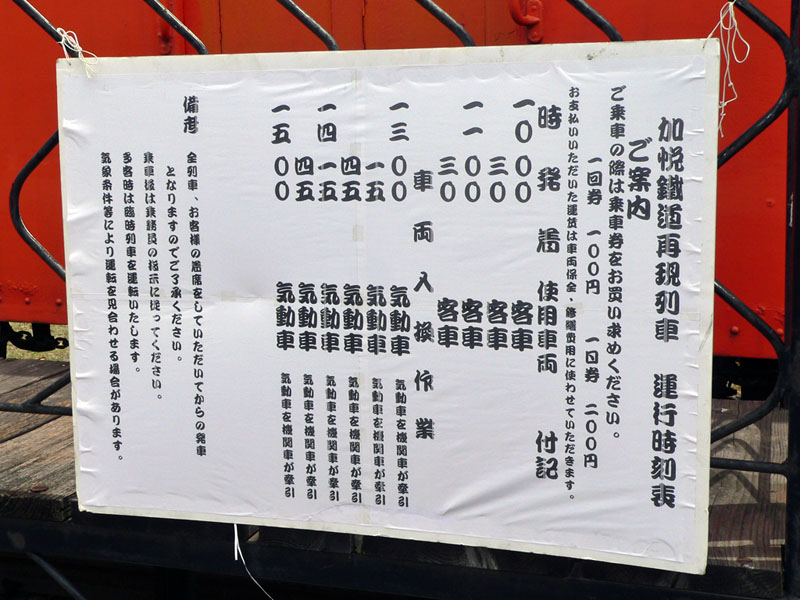 加悦鐵道再現列車　運行時刻表
ご案内
ご乗車の際は乗車券をお買い求めください。
一回券　一〇〇円　一日券　二〇〇円
お支払いいただいた運賃は車両保全、修繕費用に使わせていただきます。
時　発　着　使用車両　付記
一〇　〇〇　客車
三〇　客車
一一　〇〇　客車
三〇　客車
車両入換作業
一三　〇〇　気動車　気動車を機関車が牽引
一五　気動車　気動車を機関車が牽引
四五　気動車　気動車を機関車が牽引
一四　一五　気動車　気動車を機関車が牽引
四五　気動車　気動車を機関車が牽引
一五　〇〇　気動車　気動車を機関車が牽引
備考　全列車、お客様の着席をしていただいてからの発車
となりますのでご了承ください。
乗車後は乗務員の指示に従ってください。
多客時は臨時列車を運転いたします。
気象条件等により運転を見合わせる場合があります。